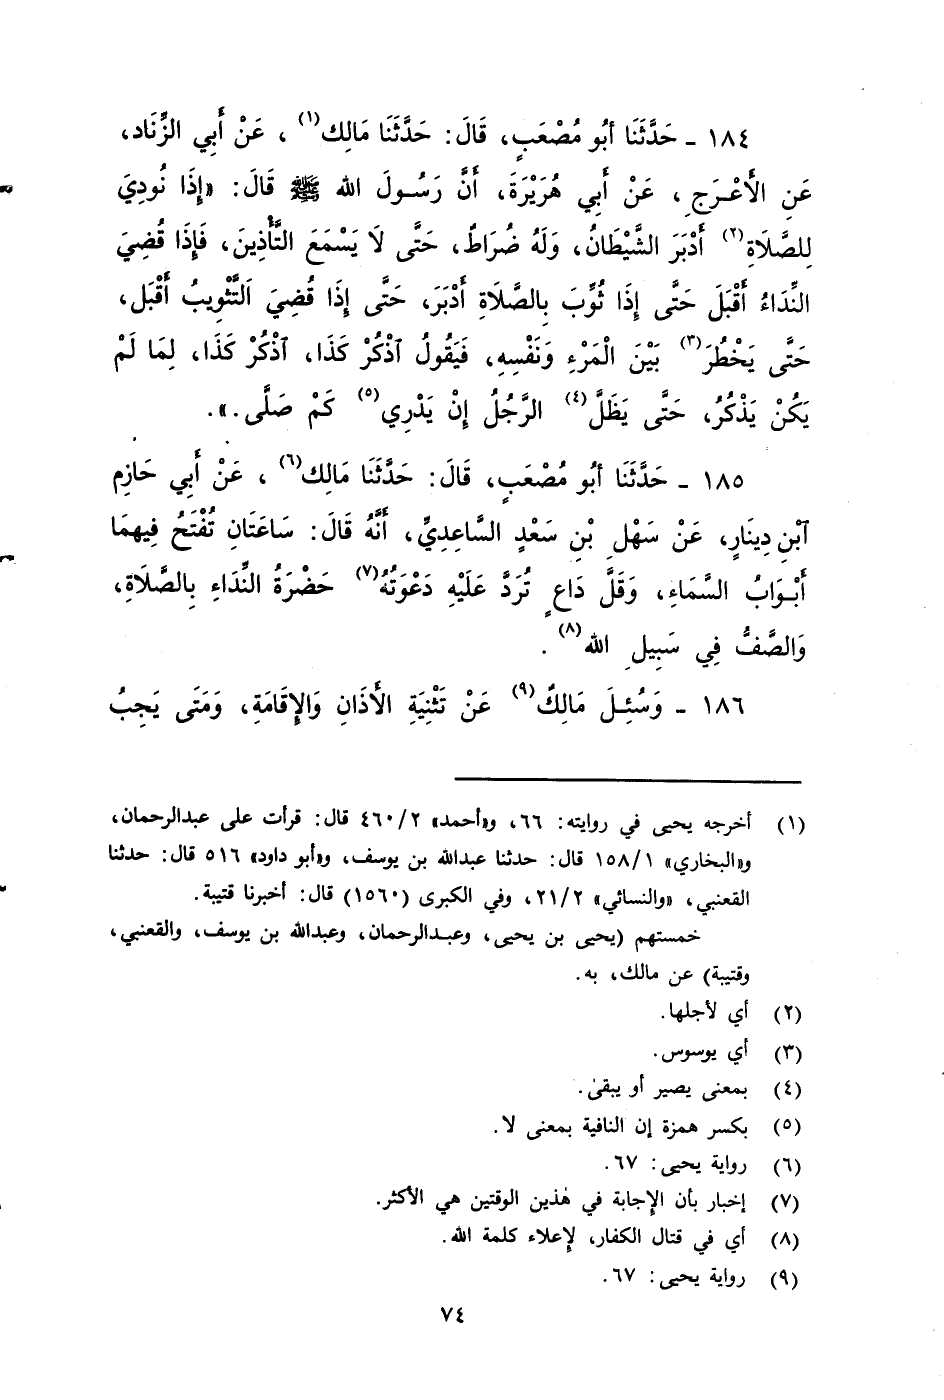 ١٨٤ - حَدَّثَنَا أَبُو مُصْعَبٍ، قَالَ: حَدَّثَنَا مَالِك(١)، عَنْ أَبِي الزِّنَاد،
عَنِ الْأَعْرَجِ، عَنْ أَبِي هُرَيْرَةَ، أَنَّ رَسُولَ الله ﷺ قَالَ: «إِذَا نُودِيَ
لِلصَّلَاةِ(٢) أَدْبَرَ الشَّيْطَانُ، وَلَهُ ضُرَاطٌ، حَتَّى لَا يَسْمَعَ التَّأْذِينَ، فَإِذَا قُضِيَ
النِّدَاءُ أَقْبَلَ حَتَّى إِذَا ثُوِّبَ بِالصَّلَاةِ أَدْبَرَ، حَتَّى إِذَا قُضِيَ التَّثْوِيبُ أَقْبَل،
حَتَّى يَخْطُرَ(٣) بَيْنَ الْمَرْءِ وَنَفْسِهِ، فَيَقُولُ ٱذْكُرْ كَذَا، ٱذْكُرْ كَذَا، لِمَا لَمْ
يَكُنْ يَذْكُرُ، حَتَّى يَظَلَّ(٤) الرَّجُلُ إِنْ يَدْرِي(٥) كَمْ صَلَّى.».
١٨٥ - حَدَّثَنَا أَبُو مُصْعَبٍ، قَالَ: حَدَّثَنَا مَالِك(٦)، عَنْ أَبِي حَازِم
ٱبْنِ دِينَارٍ، عَنْ سَهْلِ بْنِ سَعْدٍ السَّاعِدِيِّ، أَنَّهُ قَالَ: سَاعَتَانِ تُفْتَحُ فِيهِمَا
أَبْوَابُ السَّمَاءِ، وَقَلَّ دَاعٍ تُرَدَّ عَلَيْهِ دَعْوَتُهُ(٧) حَضْرَةُ النِّدَاءِ بِالصَّلَاةِ،
وَالصَّفُّ فِي سَبِيلِ الله(٨).
١٨٦ - وَسُئِلَ مَالِكٌ(٩) عَنْ تَثْنِيَةِ الْأَذَانِ وَالْإِقَامَةِ، وَمَتَى يَجِبُ
(١) أخرجه يحيى في روايته: ٦٦، و«أحمد» ٤٦٠/٢ قال: قرأت على عبدالرحمان،
و«البخاري» ١٥٨/١ قال: حدثنا عبدالله بن يوسف، و«أبو داود» ٥١٦ قال: حدثنا
القعنبي، «والنسائي» ٢١/٢، وفي الكبرى (١٥٦٠) قال: أخبرنا قتيبة.
خمستهم (يحيى بن يحيى، وعبدالرحمان، وعبدالله بن يوسف، والقعنبي،
وقتيبة) عن مالك، به.
(٢) أي لأجلها.
(٣) أي يوسوس.
(٤) بمعنى يصير أو يبقىٰ.
(٥) بكسر همزة إن النافية بمعنى لا.
(٦) رواية يحيى: ٦٧.
(٧) إخبار بأن الإجابة في هٰذين الوقتين هي الأكثر.
(٨) أي في قتال الكفار، لإعلاء كلمة الله.
(٩) رواية يحيى: ٦٧.
٧٤